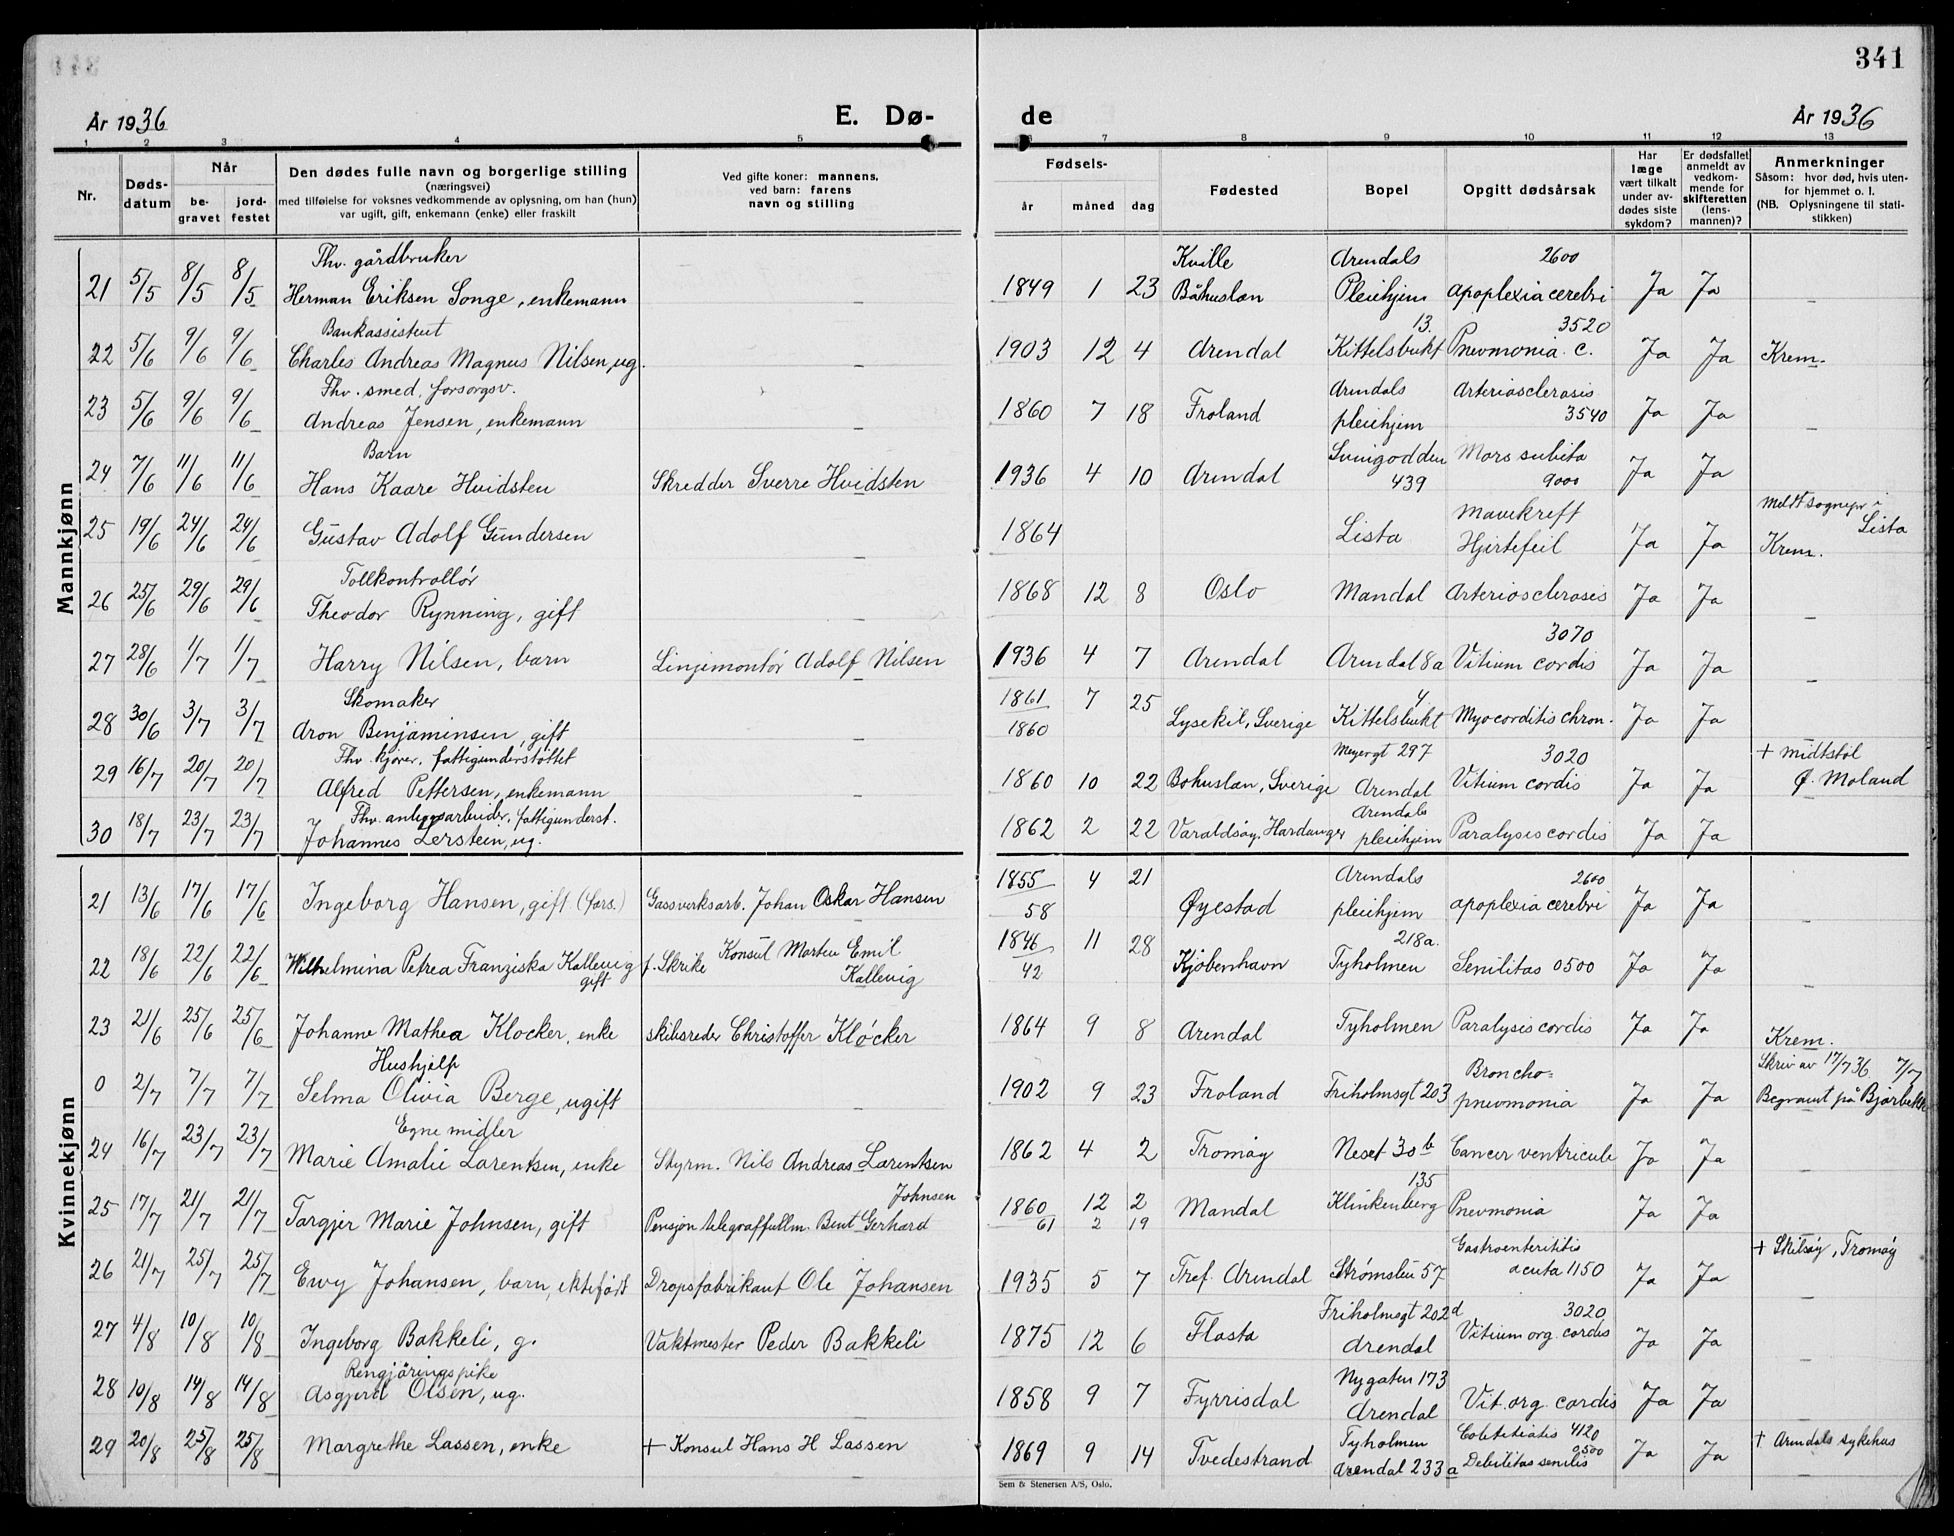 341
År 1936
E. Dø-
de
År 1936
1 2 3 4 5 6 7 8 9 10 11 12 13
Nr.
Døds-
datum
Når
be-
gravet
jord-
festet
Den dødes fulle navn og borgerlige stilling
(næringsvei)
med tilføielse for voksnes vedkommende av oplysning, om han (hun)
var ugift, gift, enkemann (enke) eller fraskilt
Ved gifte koner: mannens,
ved barn: farens
navn og stilling
Fødsels-
år måned dag
Fødested
Bopel
Opgitt dødsårsak
Har
læge
vært tilkalt
under av-
dødes siste
sykdom?
Er dødsfallet
anmeldt av
vedkom-
mende for
skifteretten
(lens-
mannen)?
Anmerkninger
Såsom: hvor død, hvis uten-
for hjemmet o. l.
(NB. Oplysningene til stati-
stikken)
Mannkjønn
Thv. gårdbruker Kville Arendals 2600
21 5/5 8/5 8/5 Herman Eriksen Songe, enkemann — 1849 1 23 Båhuslæn Pleiehjem apoplexia cerebri Ja Ja —
Bankassistent 13. 3520
22 5/6 9/6 9/6 Charles Andreas Magnus Nilsen, ug. — 1903 12 4 Arendal Kittelsbukt Pnevmonia c. Ja Ja Krem.
Thv. smed, forsorgsv. Arendals Arteriosclerosis
23 5/6 9/6 9/6 Andreas Jensen, enkemann — 1860 7 18 Froland pleiehjem 3540 Ja Ja —
Barn Mors subita
24 7/6 11/6 11/6 Hans Kaare Hvidsten Skredder Sverre Hvidsten 1936 4 10 Arendal 439 9000 Ja Ja —
Mavekreft Meldt sognepr i Lista
25 19/6 24/6 24/6 Gustav Adolf Gundersen — 1864 Lista Hjertefeil Ja Ja Krem.
Tollkontrollør
26 25/6 29/6 29/6 Theodor Rynning, gift — 1868 12 8 Oslo Mandal Arteriosclerosis Ja Ja —
3070
27 28/6 1/7 1/7 Harry Nilsen, barn Linjemontør Adolf Nilsen 1936 4 7 Arendal Arendal 8a Vitium cordis Ja Ja —
Skomaker 1861 7 25 4
28 30/6 3/7 3/7 Aron Benjaminsen, gift — 1860 Lysekil, Sverige Kittelsbukt Myocorditis chron. Ja Ja —
Thv. kjører, fattigunderstøttet Meyergt 297 3020 + Midtstøl
29 16/7 20/7 20/7 Alfred Pettersen, enkemann — 1860 10 22 Bohuslæn, Sverige Arendal Vitium cordis Ja Ja Ø. Moland
Thv. anleggsarbeider, fattigunderst. Arendals
30 18/7 23/7 23/7 Johannes Lerstein, ug. 1862 2 22 Varaldsøy, Hardanger pleiehjem Paralysis cordis Ja Ja —
Kvinnekjønn
1855 4 21 Arendals 2600
21 13/6 17/6 17/6 Ingeborg Hansen, gift (fors.) Gassverksarb. Johan Oskar Hansen 58 Øyestad pleiehjem apoplexia cerebri Ja Ja —
Konsul Morten Emil 1846 11 28 218a.
22 18/6 22/6 22/6 Wilhelmina Petrea Franziska Kallevig f. Skrike Kallevig 42 Kjøbenhavn Tyholmen Senilitas 0500 Ja Ja —
gift
23 21/6 25/6 25/6 Johanne Mathea Kløcker, enke skibsreder Christoffer Kløcker 1864 9 8 Arendal Tyholmen Paralysis cordis Ja Ja Krem.
Hushjelp Broncho= Skriv av 17/7 36 7/7
0 2/7 7/7 7/7 Selma Olivia Berge, ugift — 1902 9 23 Froland Friholmsgt 203 pnevmonia Ja Ja Begravet på Bjorbekk
Egne midler
24 16/7 23/7 23/7 Marie Amalie Larentsen, enke Styrm. Nils Andreas Larentsen 1862 4 2 Tromøy Neset 30b Cancer ventricule Ja Ja —
Johnsen 135
25 17/7 21/7 21/7 Targjer Marie Johnsen, gift Pensjon telegraffullm. Bent Gerhard 1860 12 2 Mandal Klinkenberg Pnevmonia Ja Ja
61 2 19
Gastroenteritis + Skilsøy, Tromøy
26 21/7 25/7 25/7 Ewy Johansen, barn, ektefødt Dropsfabrikant Ole Johansen 1935 5 7 Tref. Arendal Strømsbu 57 acuta 1150 Ja Ja —
Friholmsgt 202d 3020
27 4/8 10/8 10/8 Ingeborg Bakkeli, g. Vaktmester Peder Bakkeli 1875 12 6 Flosta Arendal Vitium org. cordis Ja Ja —
Rengjøringspike Nygaten 173
28 10/8 14/8 14/8 Asgjerd Olsen, ug. 1858 9 7 Fyrrisdal Arendal Vit. org. cordis Ja Ja —
Tyholmen 4120 + Arendals sykehus
29 20/8 25/8 25/8 Margrethe Lassen, enke + Konsul Hans H Lassen 1869 9 14 Tvedestrand Arendal 233a Debilitas senilis 0500 Ja Ja —
Sem & Stenersen A/S, Oslo.